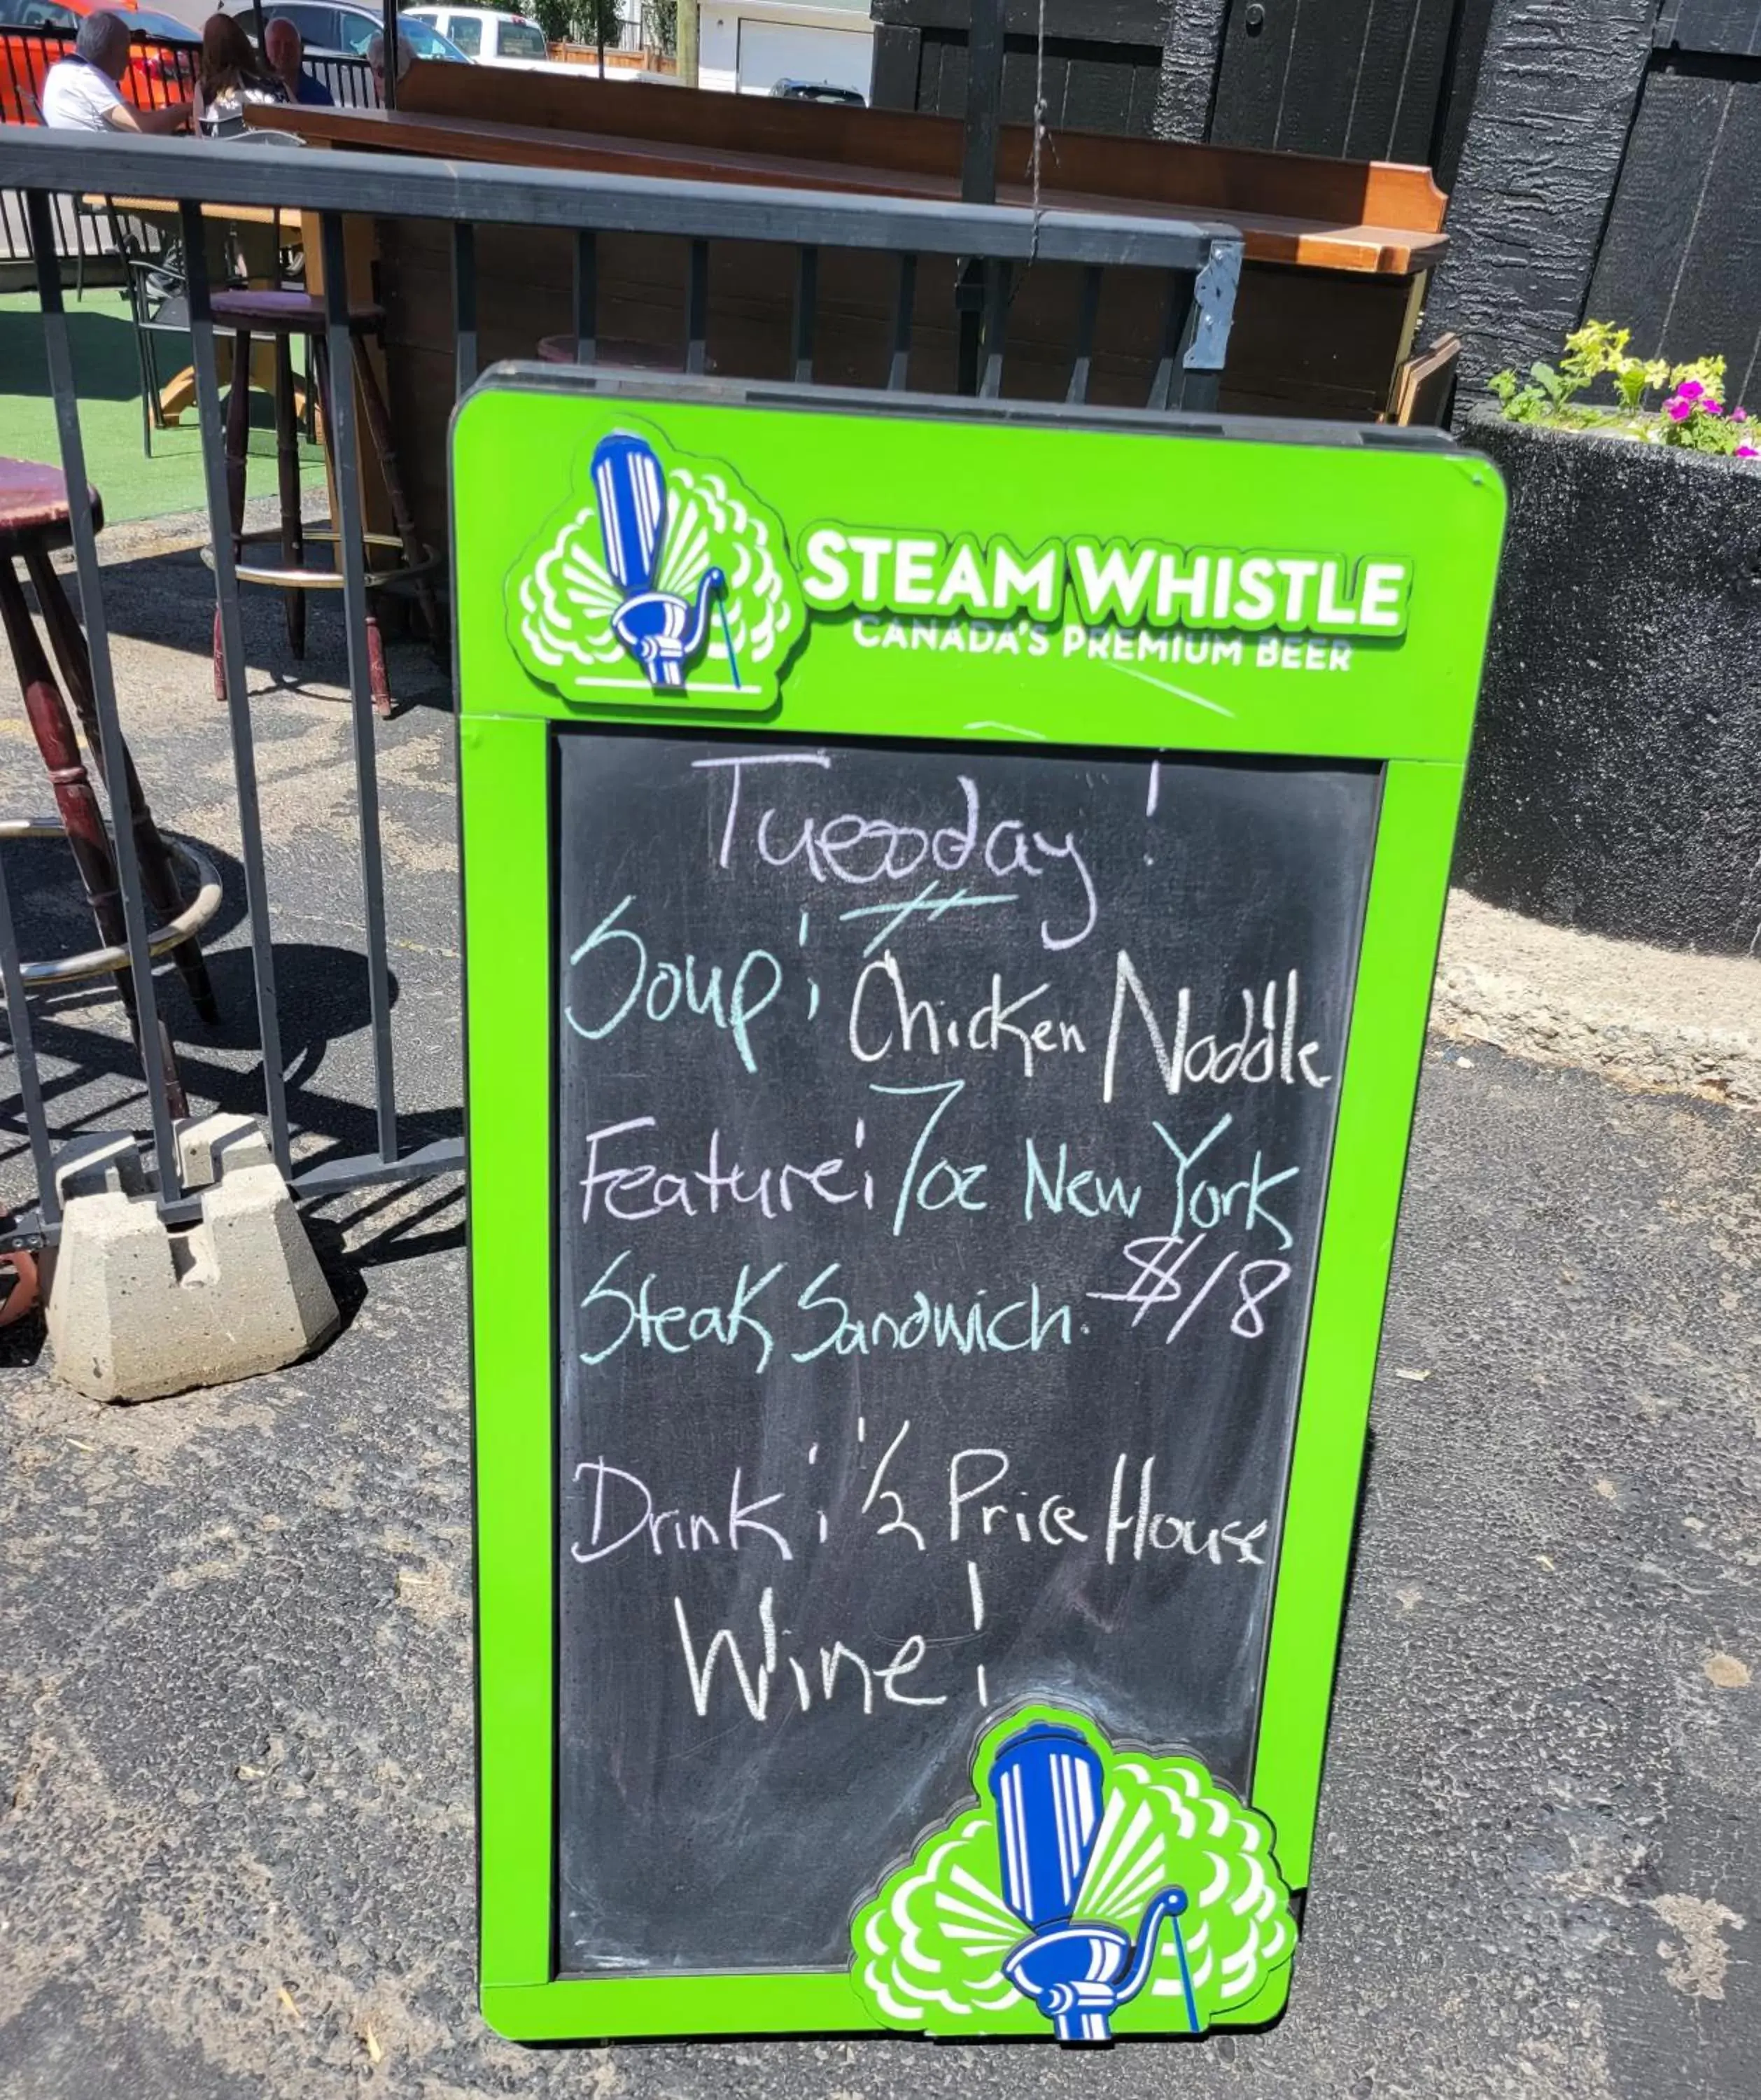 STEAM WHISTLE
CANADA'S PREMIUM BEER
Tuesday!
Soup: Chicken Noddle
Feature: 7oz New York
Steak Sandwich. $18
Drink: 1/2 Price House
Wine!